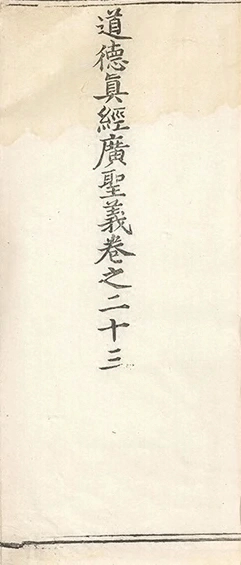 道德真經廣聖義卷之二十三